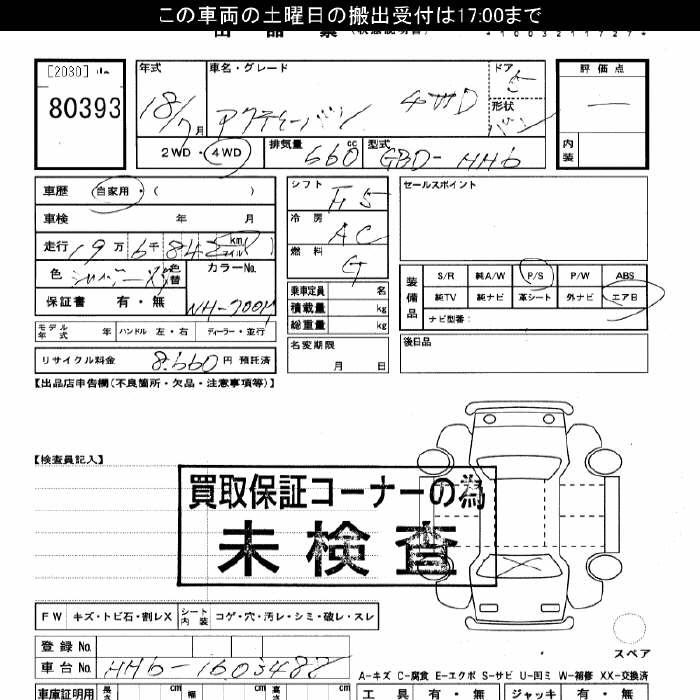 この車両の土曜日の搬出受付は17:00まで
出 品 票 (状態説明書) *1003211727*
[2030]
80393
年式 18/7月
車名・グレード アクティーバン 4WD
ドア 5
形状 バン
評価点 —
内装
2WD・4WD
排気量 660 cc
型式 GBD-HH6
車歴 自家用・( )
車検 年 月
走行 19万6千842 km マイル
色 シルバーM 色替
カラーNo. NH-700M
保証書 有・無
モデル年式 年 ハンドル 左・右 ディーラー・並行
リサイクル料金 8,660 円 預託済
シフト F5
冷房 AC
燃料 G
乗車定員 名
積載量 kg
総重量 kg
名変期限
月 日
セールスポイント
装備品
S/R 純A/W P/S P/W ABS
純TV 純ナビ 革シート 外ナビ エアB
ナビ型番:
後日品
【出品店申告欄(不良箇所・欠品・注意事項等)】
【検査員記入】
買取保証コーナーの為
未検査
FW キズ・トビ石・割レX シート内装 コゲ・穴・汚レ・シミ・破レ・スレ
スペア
登録No.
車台No. HH6-1603487
A-キズ C-腐食 E-エクボ S-サビ U-凹ミ W-補修 XX-交換済
車庫証明用 長さ cm 幅 cm 高さ cm
工具 有・無 ジャッキ 有・無